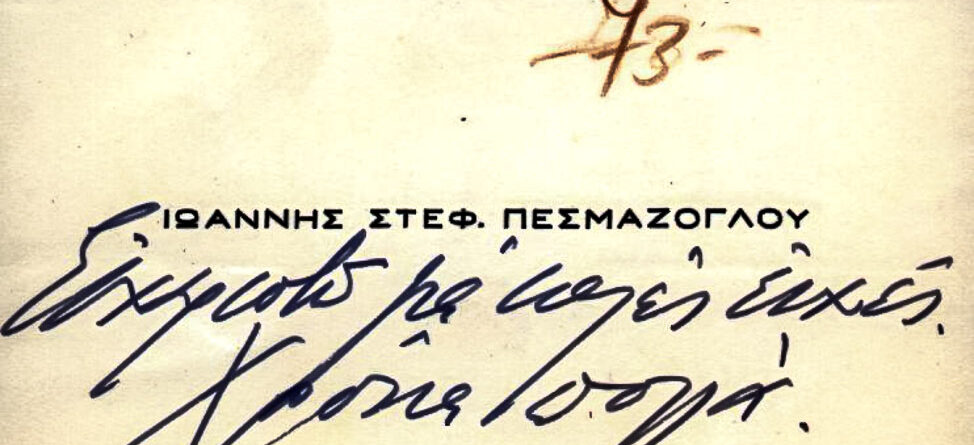 73-
ΙΩΑΝΝΗΣ ΣΤΕΦ. ΠΕΣΜΑΖΟΓΛΟΥ
Εὐχαριστῶ μὲ καλὲς εὐχές.
Χρόνια πολλά.